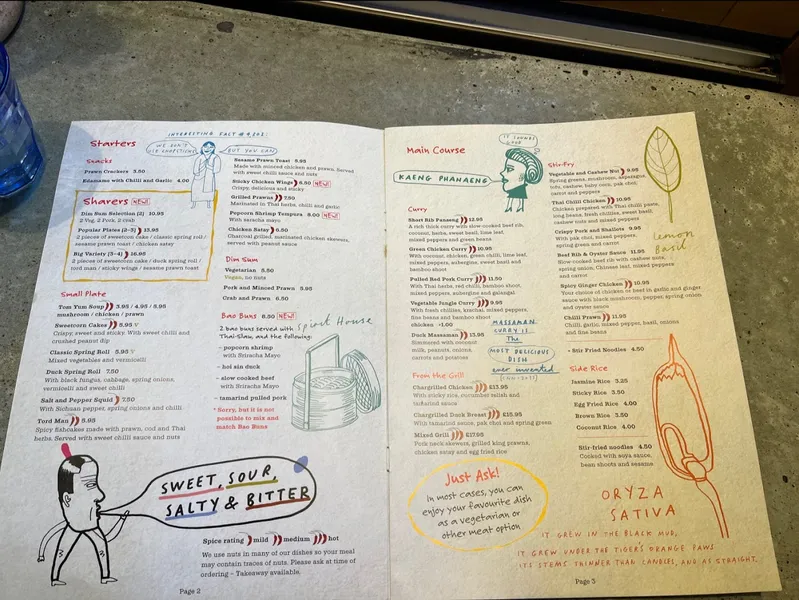 INTERESTING FACT # 9,202:
WE DON'T USE CHOPSTICKS
BUT YOU CAN
Starters
Snacks
Prawn Crackers 3.50
Edamame with Chilli and Garlic 4.00
Sharers NEW!
Dim Sum Selection [2] 10.95
2 Veg, 2 Pork, 2 crab
Popular Plates (2-3) 13.95
2 pieces of sweetcorn cake / classic spring roll /
sesame prawn toast / chicken satay
Big Variety (3-4) 16.95
2 pieces of sweetcorn cake / duck spring roll /
tord man / sticky wings / sesame prawn toast
Small Plate
Tom Yum Soup 3.95 / 4.95 / 5.95
mushroom / chicken / prawn
Sweetcorn Cakes 5.95 V
Crispy, sweet and sticky. With sweet chilli and
crushed peanut dip
Classic Spring Roll 5.95 V
Mixed vegetables and vermicelli
Duck Spring Roll 7.50
With black fungus, cabbage, spring onions,
vermicelli and sweet chilli
Salt and Pepper Squid 7.50
With Sichuan pepper, spring onions and chilli
Tord Man 5.95
Spicy fishcakes made with prawn, cod and Thai
herbs. Served with sweet chilli sauce and nuts
Sesame Prawn Toast 5.95
Made with minced chicken and prawn. Served
with sweet chilli sauce and nuts
Sticky Chicken Wings 6.50 NEW!
Crispy, delicious and sticky
Grilled Prawns 7.50
Marinated in Thai herbs, chilli and garlic
Popcorn Shrimp Tempura 8.00 NEW!
With saracha mayo
Chicken Satay 6.50
Charcoal grilled, marinated chicken skewers,
served with peanut sauce
Dim Sum
Vegetarian 5.50
Vegan, no nuts
Pork and Minced Prawn 5.95
Crab and Prawn 6.50
Bao Buns 6.50 NEW!
Spirit House
2 bao buns served with
Thai-Slaw, and the following:
- popcorn shrimp
with Sriracha Mayo
- hoi sin duck
- slow cooked beef
with Sriracha Mayo
- tamarind pulled pork
* Sorry, but it is not
possible to mix and
match Bao Buns
SWEET, SOUR,
SALTY & BITTER
Spice rating mild medium hot
We use nuts in many of our dishes so your meal
may contain traces of nuts. Please ask at time of
ordering – Takeaway available.
Page 2
Main Course
IT SOUNDS GOOD
KAENG PHANAENG
Curry
Short Rib Panaeng 12.95
A rich thick curry with slow cooked beef rib,
coconut, herbs, sweet basil, lime leaf,
mixed peppers and green beans
Green Chicken Curry 10.95
With coconut, chicken, green chilli, lime leaf,
mixed peppers, aubergine, sweet basil and
bamboo shoot
Pulled Red Pork Curry 11.50
With Thai herbs, red chilli, bamboo shoot,
mixed peppers, aubergine and galangal
Vegetable Jungle Curry 9.95
With fresh chillies, krachai, mixed peppers,
fine beans and bamboo shoot
chicken +1.00
Duck Massaman 13.95
Simmered with coconut
milk, peanuts, onions,
carrots and potatoes
MASSAMAN
CURRY IS
The
MOST DELICIOUS
DISH
ever invented
From the Grill
Chargrilled Chicken £13.95
With sticky rice, cucumber relish and
tamarind sauce
Chargrilled Duck Breast £15.95
With tamarind sauce, pak choi and spring green
Mixed Grill £17.95
Pork neck skewers, grilled king prawns,
chicken satay and egg fried rice
Just Ask!
In most cases, you can
enjoy your favourite dish
as a vegetarian or
other meat option
Stir-Fry
Vegetable and Cashew Nut 9.95
Spring greens, mushroom, asparagus,
tofu, cashew, baby corn, pak choi,
carrot and mixed peppers
Thai Chilli Chicken 10.95
Chicken prepared with Thai chilli paste,
long beans, fresh chillies, sweet basil,
cashew nuts and mixed peppers
Crispy Pork and Shallots 9.95
With pak choi, mixed peppers,
spring green and carrot
Beef Rib & Oyster Sauce 11.95
Slow-cooked beef rib with cashew nuts,
spring onion, Chinese leaf, mixed peppers
and carrot
Spicy Ginger Chicken 10.95
Your choice of chicken or beef in garlic and ginger
sauce with black mushroom, pepper, spring onion
and oyster sauce
Chilli Prawn 11.95
Chilli, garlic, mixed pepper, basil, onions
and fine beans
- Stir Fried Noodles 4.50
Lemon
Basil
Side Rice
Jasmine Rice 3.25
Sticky Rice 3.50
Egg Fried Rice 4.00
Brown Rice 3.50
Coconut Rice 4.00
Stir-fried noodles 4.50
Cooked with soya sauce,
bean shoots and sesame
ORYZA
SATIVA
IT GREW IN THE BLACK MUD,
IT GREW UNDER THE TIGER'S ORANGE PAWS
ITS STEMS THINNER THAN CANDLES, AND AS STRAIGHT.
Page 3